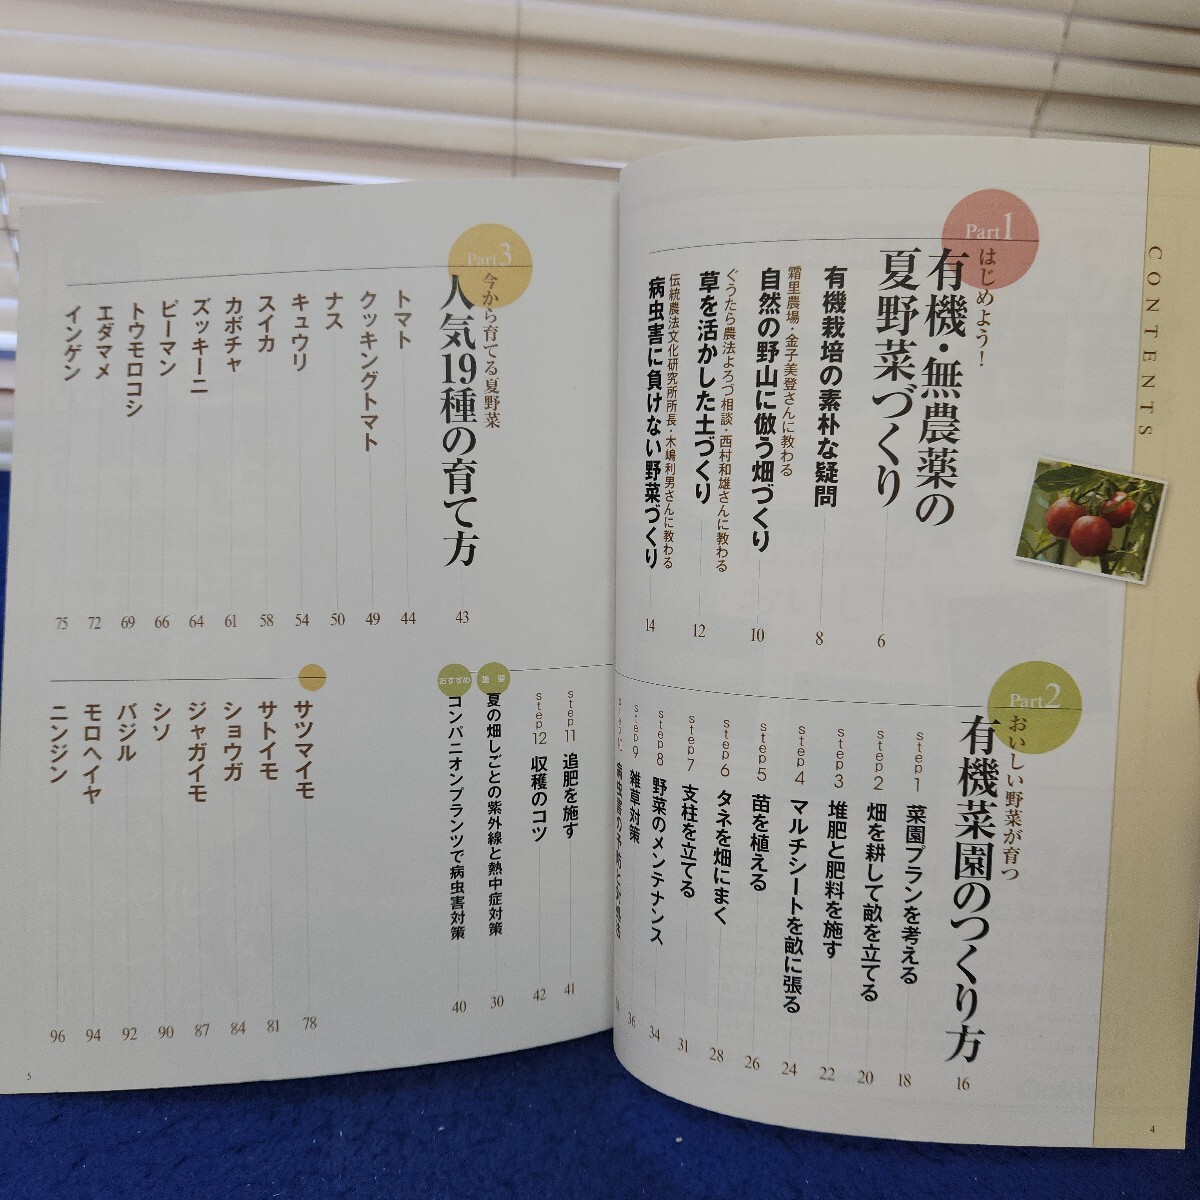 CONTENTS
Part1
はじめよう！
有機・無農薬の
夏野菜づくり
6
有機栽培の素朴な疑問
8
霜里農場・金子美登さんに教わる
自然の野山に倣う畑づくり
10
ぐうたら農法よろづ相談・西村和雄さんに教わる
草を活かした土づくり
12
伝統農法文化研究所所長・木嶋利男さんに教わる
病虫害に負けない野菜づくり
14
Part2
おいしい野菜が育つ
有機菜園のつくり方
16
step1 菜園プランを考える
18
step2 畑を耕して畝を立てる
20
step3 堆肥と肥料を施す
22
step4 マルチシートを畝に張る
24
step5 苗を植える
26
step6 タネを畑にまく
28
step7 支柱を立てる
31
step8 野菜のメンテナンス
34
step9 雑草対策
36
4
step11 追肥を施す
41
step12 収穫のコツ
42
夏の畑しごとの紫外線と熱中症対策
30
おすすめ
コンパニオンプランツで病虫害対策
40
Part3
今から育てる夏野菜
人気19種の育て方
43
トマト
44
クッキングトマト
49
ナス
50
キュウリ
54
スイカ
58
カボチャ
61
ズッキーニ
64
ピーマン
66
トウモロコシ
69
エダマメ
72
インゲン
75
サツマイモ
78
サトイモ
81
ショウガ
84
ジャガイモ
87
シソ
90
バジル
92
モロヘイヤ
94
ニンジン
96
5